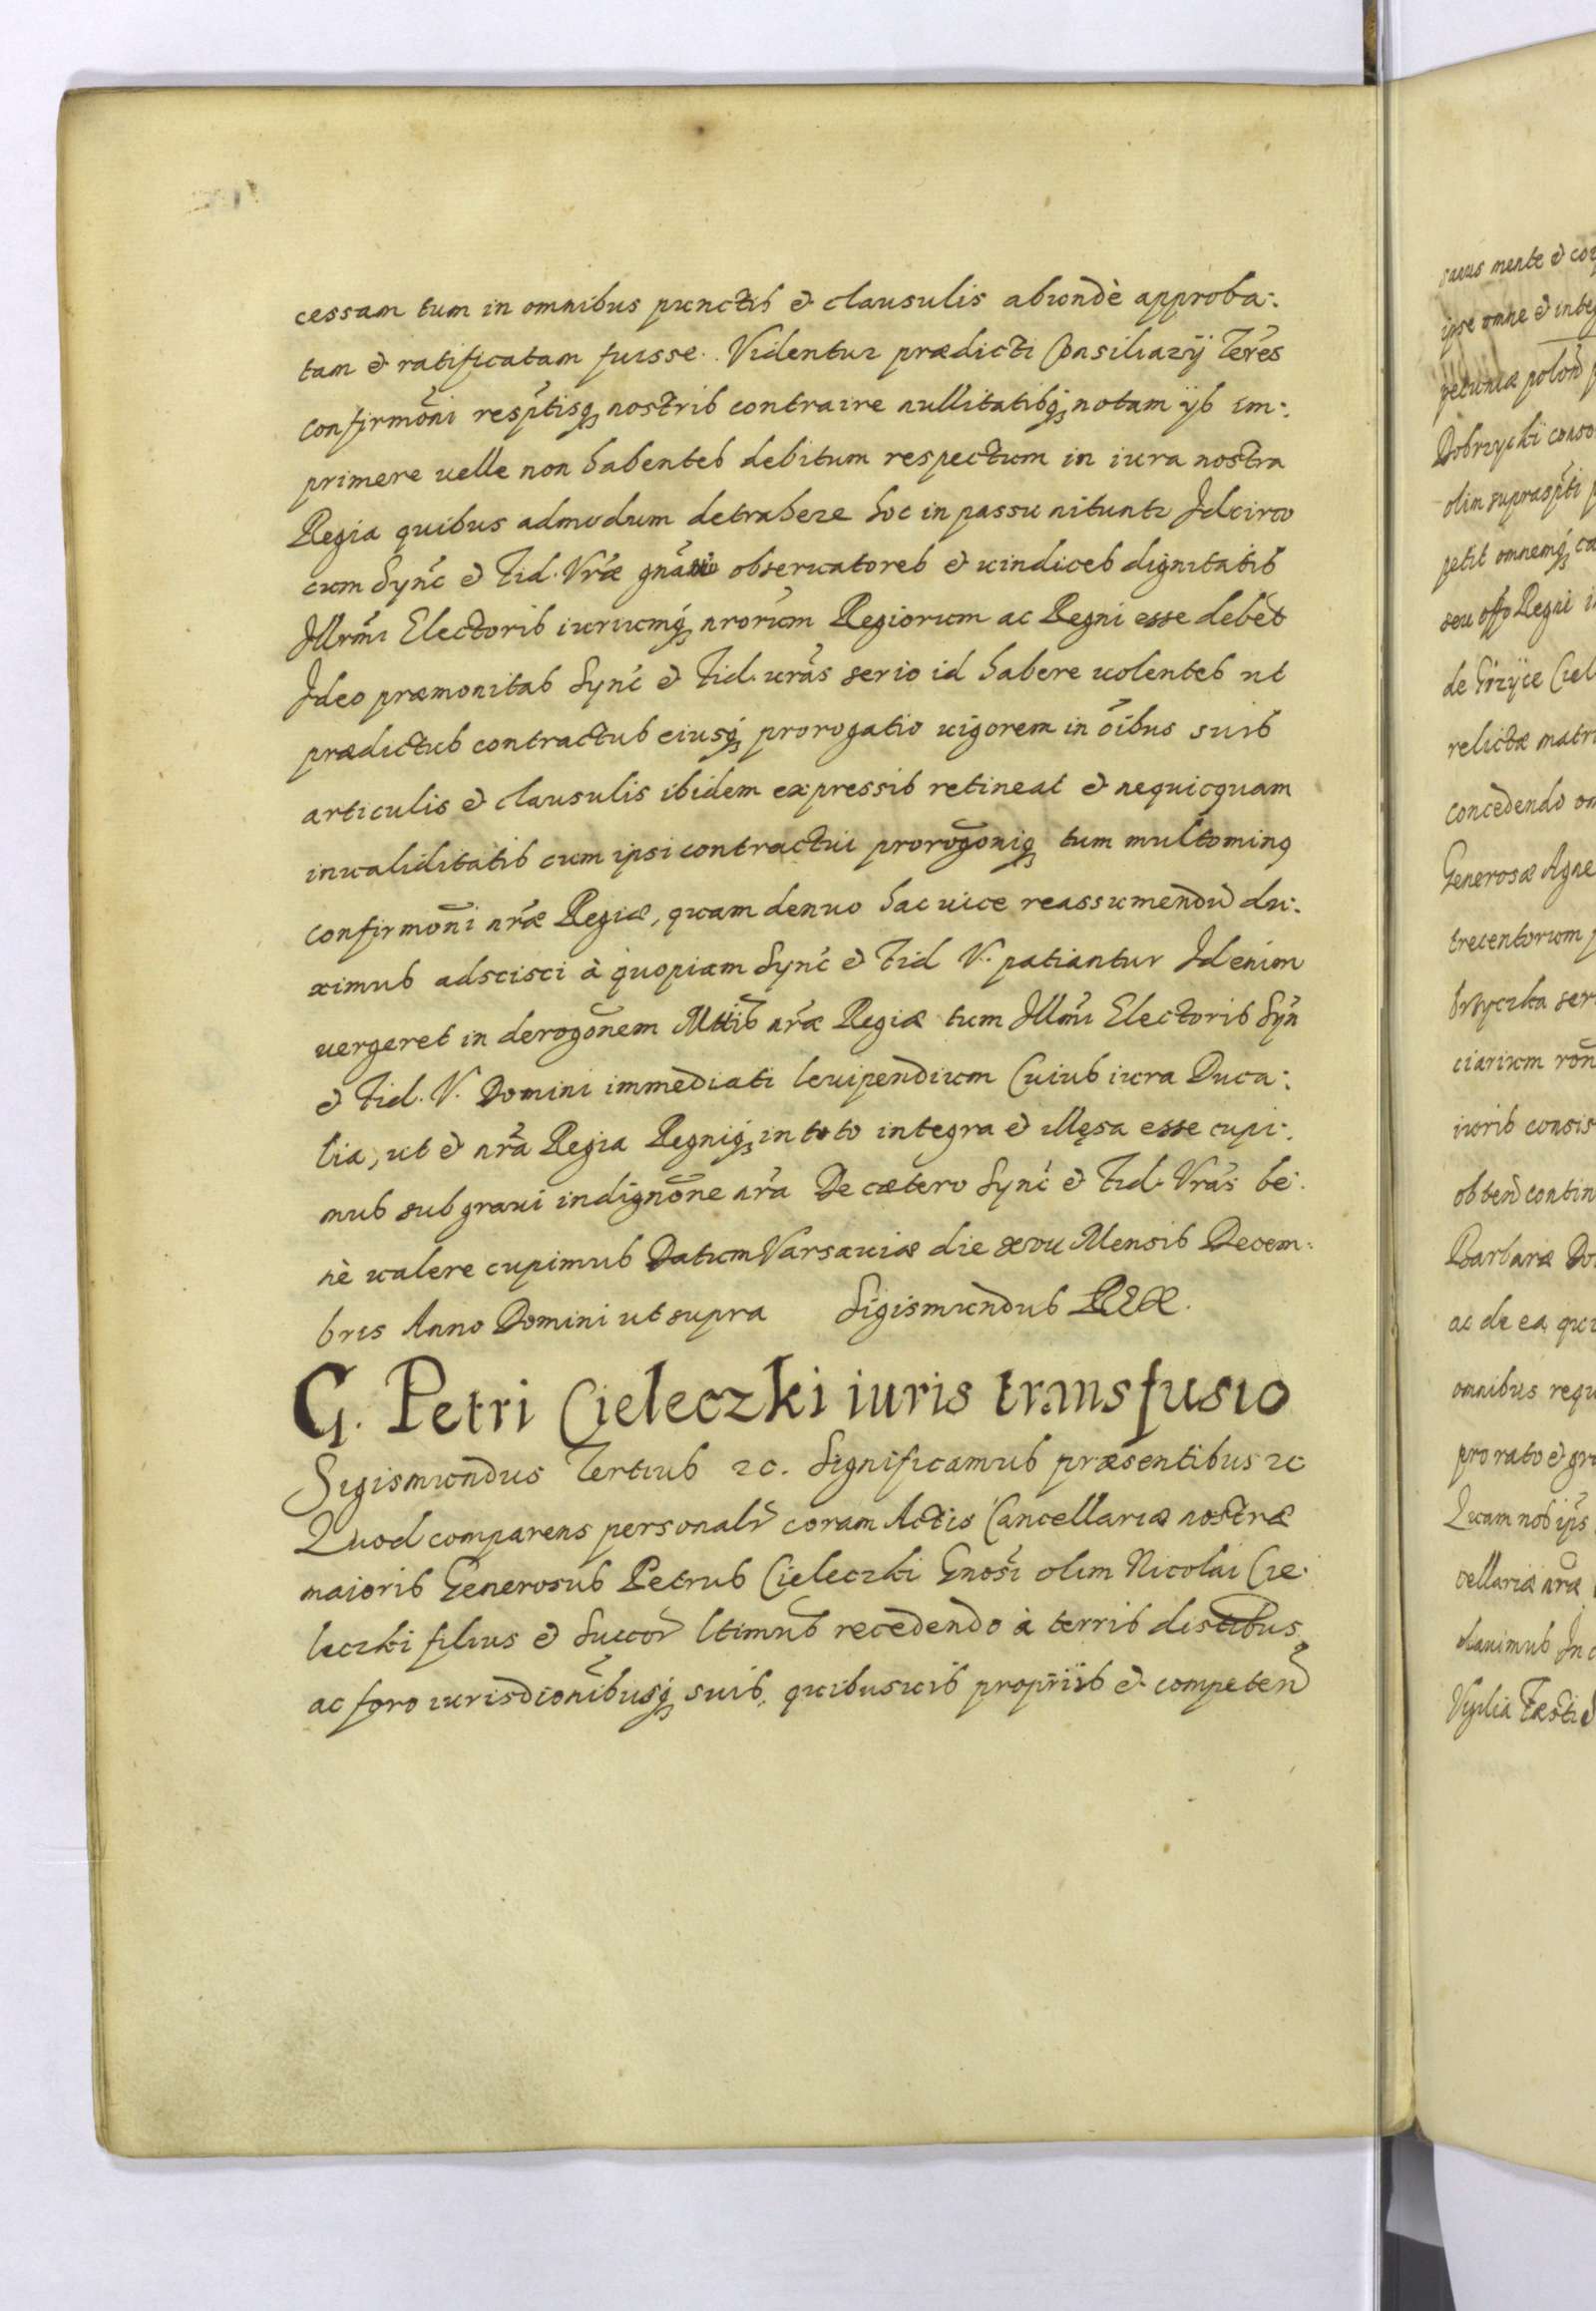 cessam tum in omnibus punctis & clausulis abundè approba:
tam & ratificatam fuisse. Videntur prædicti Consiliarÿ Terẽs
confirmõni resp̃tisq; nostris contraire nullitatibq; notam ÿs im:
primere uelle non habentes debitum respectum in iura nostra
Regia quibus admodum detrahere hoc in passu nituntr Idcirco
cum Synč & Fid. Vræ obseruatores & uindices dignitatis
Illrmi Electoris iuriumq; nrorum Regiorum ac Regni esse debẽt
Ideo præmonitas Synč & Fid. uras serio id habere uolentes ut
prædictus contractus eiusq; prorogatio uigorem in õibus suis
articulis & clausulis ibidem expressis retineat & nequicquam
inualiditatis cum ipsi contractui prorogõniq; tum multominq
confirmõni nræ Regiæ, quam denuo hac uice reassumendũ du:
ximus adscisci à quopiam Synč & Fid V. patiantur Id enim
uergeret in derogõnem Mttis nræ Regiæ tum Illmi Electoris Syñ
& Fid. V. Domini immediati leuipendium Cuius iura Duca:
lia, ut & nra Regia Regniq; in toto integra & illęsa esse cupi:
mus sub graui indignõne nra De cætero Synč & Fid. Vras be:
nè ualere cupimus Datum Varsauiæ die xvii Mensis Decem:
bris Anno Domini ut supra Sigismundus REX.
G. Petri Cieleczki iuris transfusio
Sigismundus Tertius &c. Significamus præsentibus &c
Quod comparens personalr coram Actis Cancellariæ nostræ
maioris Generosus Petrus Cieleczki Gnosi olim Nicolai Cie:
leczki filius & Succor ltimus recedendo à terris distibus
ac foro iurisdionibusq; suis, quibusuis proprÿs & competeñ
sanus mente & cor
ipse omne & integ
pecuniæ polon p
Dobrzycki conso
olim suprasp̃ti p
petit omnemq; ca
seu offo Regni i
relictæ matri
concedendo om
Generosæ Agne
trecentorum p
ciarium
iuris consis
obteñ contin
Barbaræ Do
ac de ea qui
omnibus requ
pro rato & gra
Quam nos ips
cellariæ nræ
Vigilia Fæsti